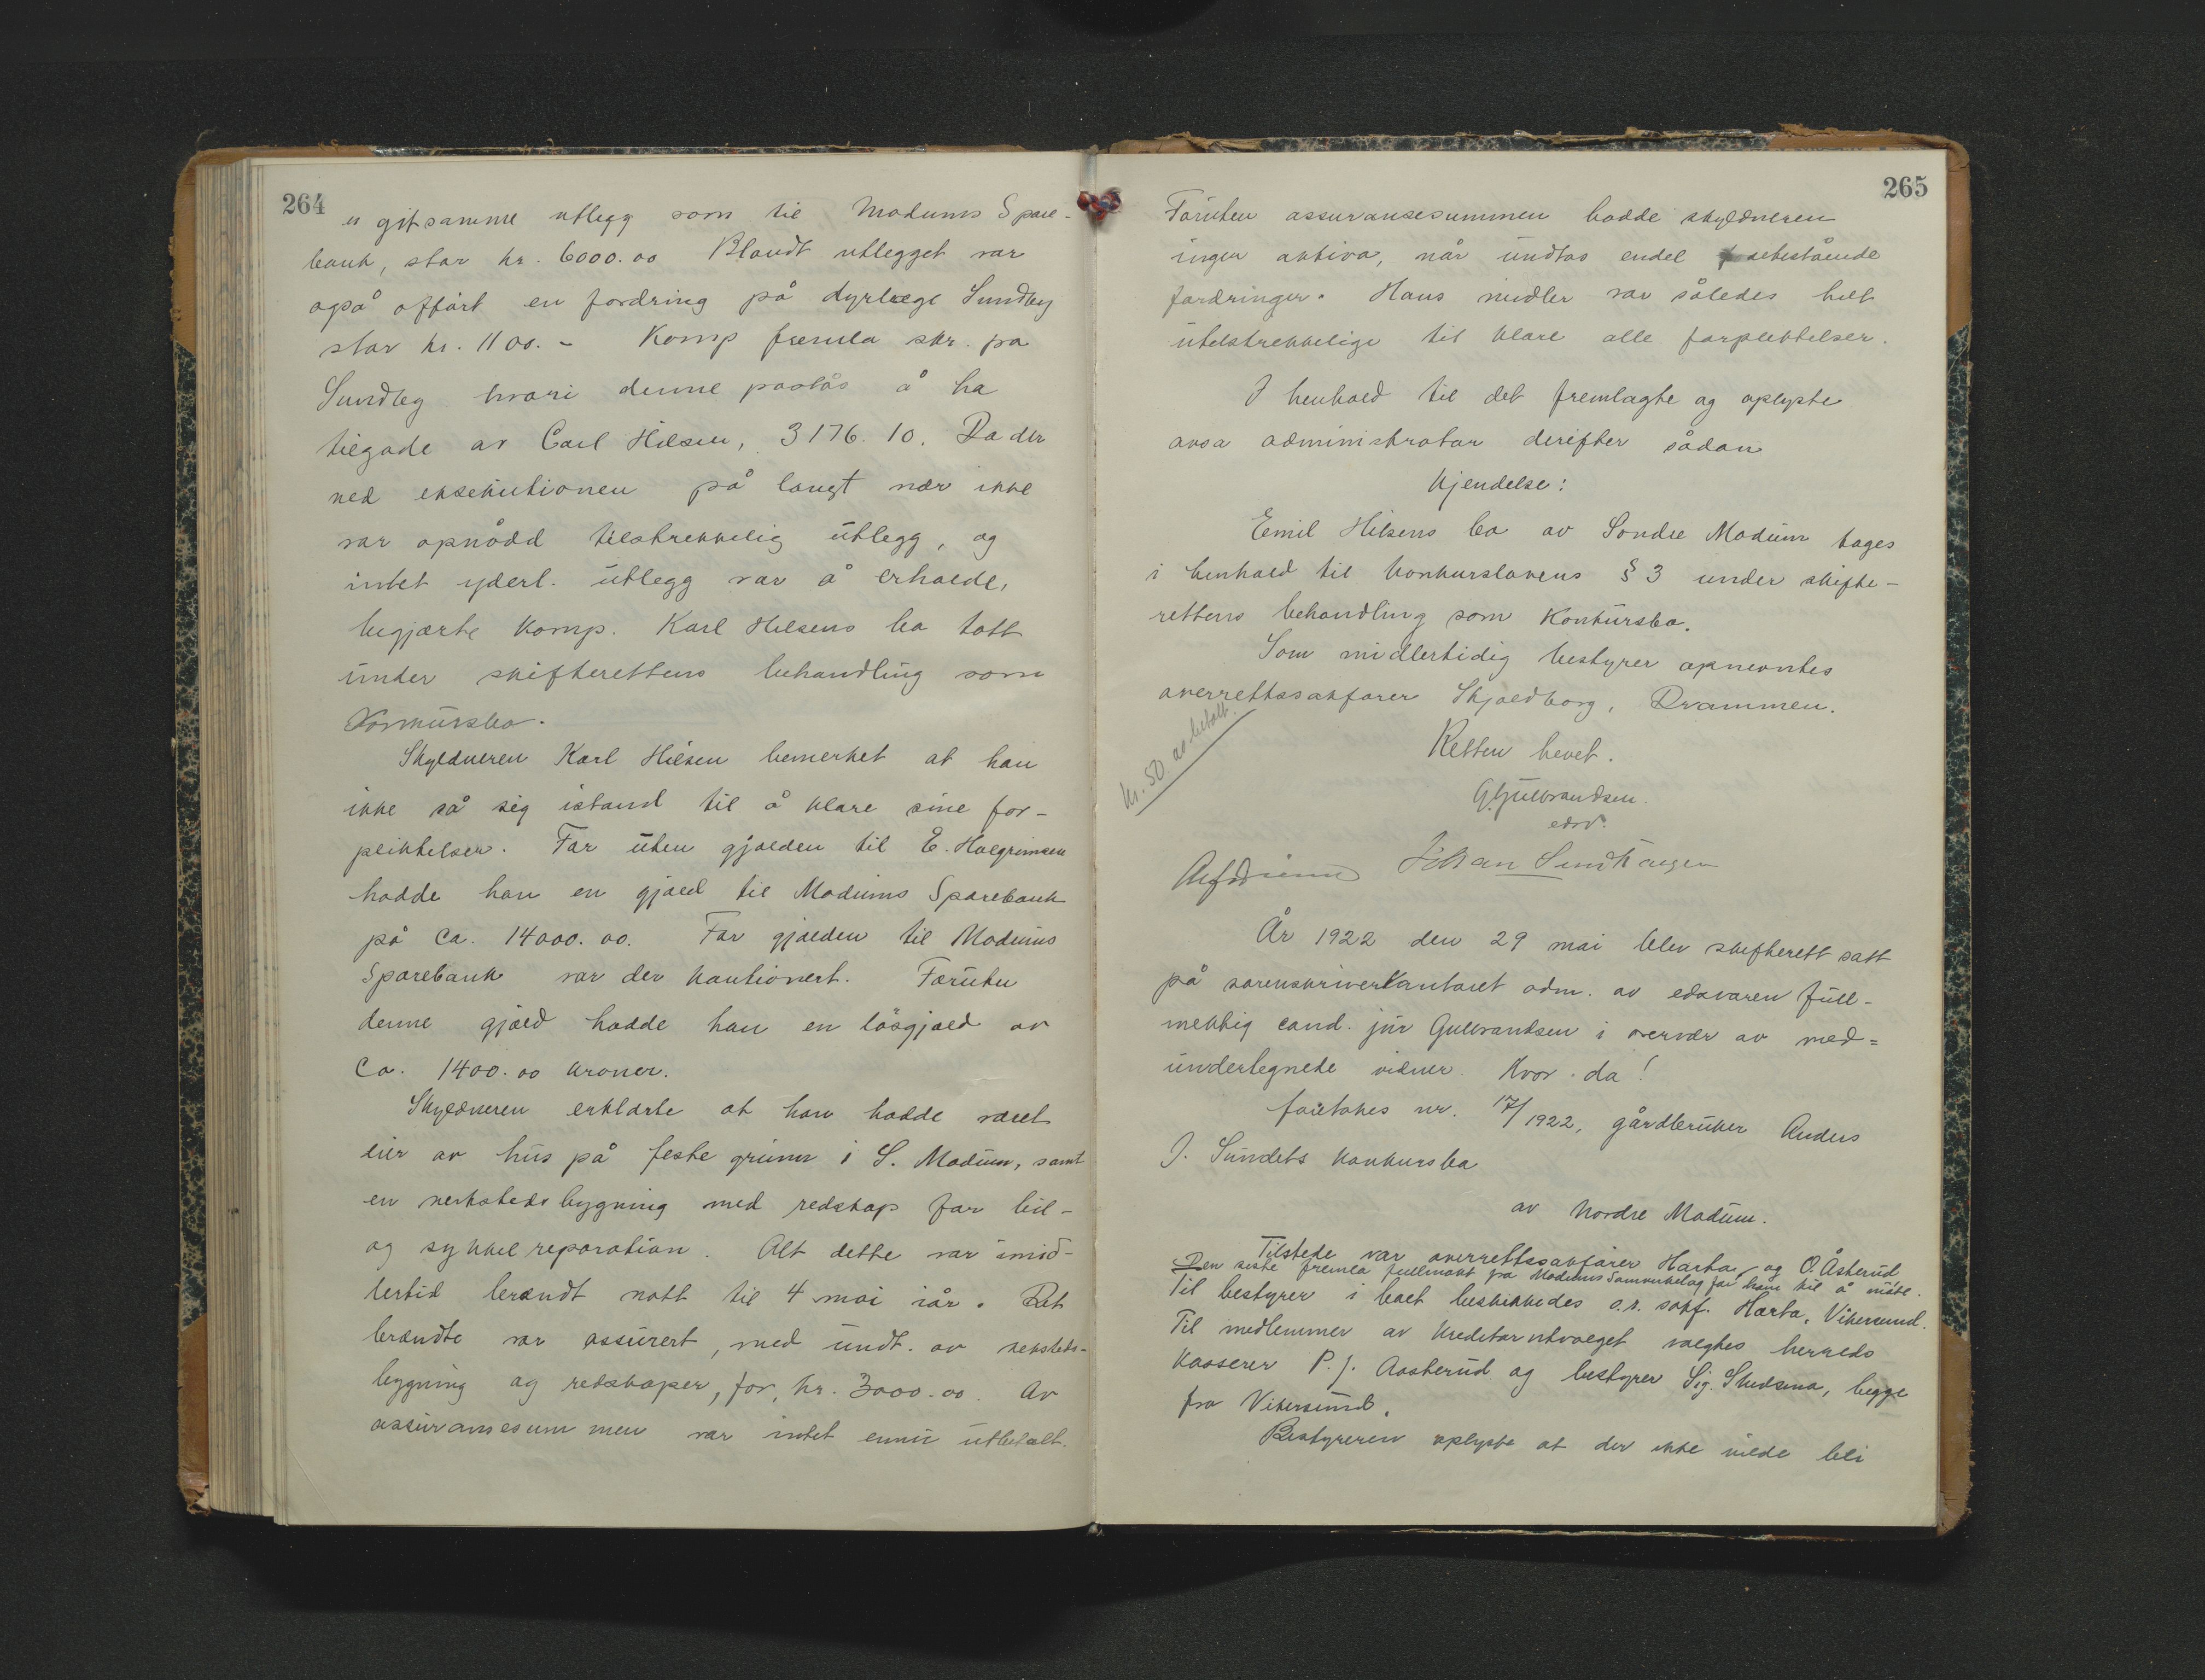 264
er git samme utlegg som til Modums Spare-
bank, stor kr. 6000.00 Blandt utlegget var
også opført en fordring på dyrlæge Sundby
stor kr. 1100.- Komp fremla skr. fra
Sundby hvori denne paastås å ha
tilgode av Carl Hilsen, 3176.10. Da der
ved eksekutionen på langt nær ikke
var opnådd tilstrekkelig utlegg, og
intet yderl. utlegg var å erholde,
begjærte Komp. Karl Hilsens bo tatt
under skifterettens behandling som
Konkursbo.
Skyldneren Karl Hilsen bemerket at han
ikke så sig istand til å klare sine for-
pliktelser. For uten gjælden til E. Halgrimsen
hadde han en gjæld til Modums Sparebank
på ca. 14000.00. For gjælden til Modums
Sparebank var der kautionert. Foruten
denne gjæld hadde han en løsgjæld av
Ca. 1400.00 kroner.
Skyldneren erklærte at han hadde været
eier av hus på feste grunn i S. Modum, samt
en verkstedsbygning med redskap for bil-
og sykkelreparation. Alt dette var imid-
lertid brændt natt til 4 mai iår. Det
brændte var assurert, med undt. av verksteds-
bygning og redskaper, for kr. 3000.00. Av
assuransesummen var intet ennu utbetalt.
265
Foruten assuransesummen hadde skyldneren
ingen aktiva, når undtas endel utestående
fordringer. Hans midler var således helt
utilstrekkelige til klare alle forpliktelser.
I henhold til det fremlagte og oplyste
avsa administrator derefter sådan
Kjendelse:
Emil Hilsens bo av Søndre Modum tages
i henhold til konkurslovens § 3 under skifte-
rettens behandling som Konkursbo.
Som midlertidig bestyrer opnevntes
overrettssakfører Skjoldborg, Drammen.
kr. 50.00 betalt.
Retten hevet.
G. Gulbrandsen.
edsv.
Johan Sundhaugen
År 1922 den 29 mai blev skifterett satt
på sorenskriverkontoret adm. av edsvoren full-
mektig cand. jur Gulbrandsen i overvær av med=
underlegnede vidner. Hvor da!
foretokes nr. 17/1922, gårdbruker Anders
J. Sundets konkursbo
av Nordre Modum.
Tilstede var overrettssakfører Harbo, og O. Åsterud
Den siste fremla fullmakt fra Modums Samvirkelag for ham til å møte.
Til bestyrer i boet beskikkedes o.r. sakf. Harbo, Vikersund.
Til medlemmer av kreditorutvalget valgtes herreds
kasserer P. J. Aasterud og bestyrer Sig. Skedsmo, begge
fra Vikersund.
Bestyreren oplyste at der ikke vilde bli